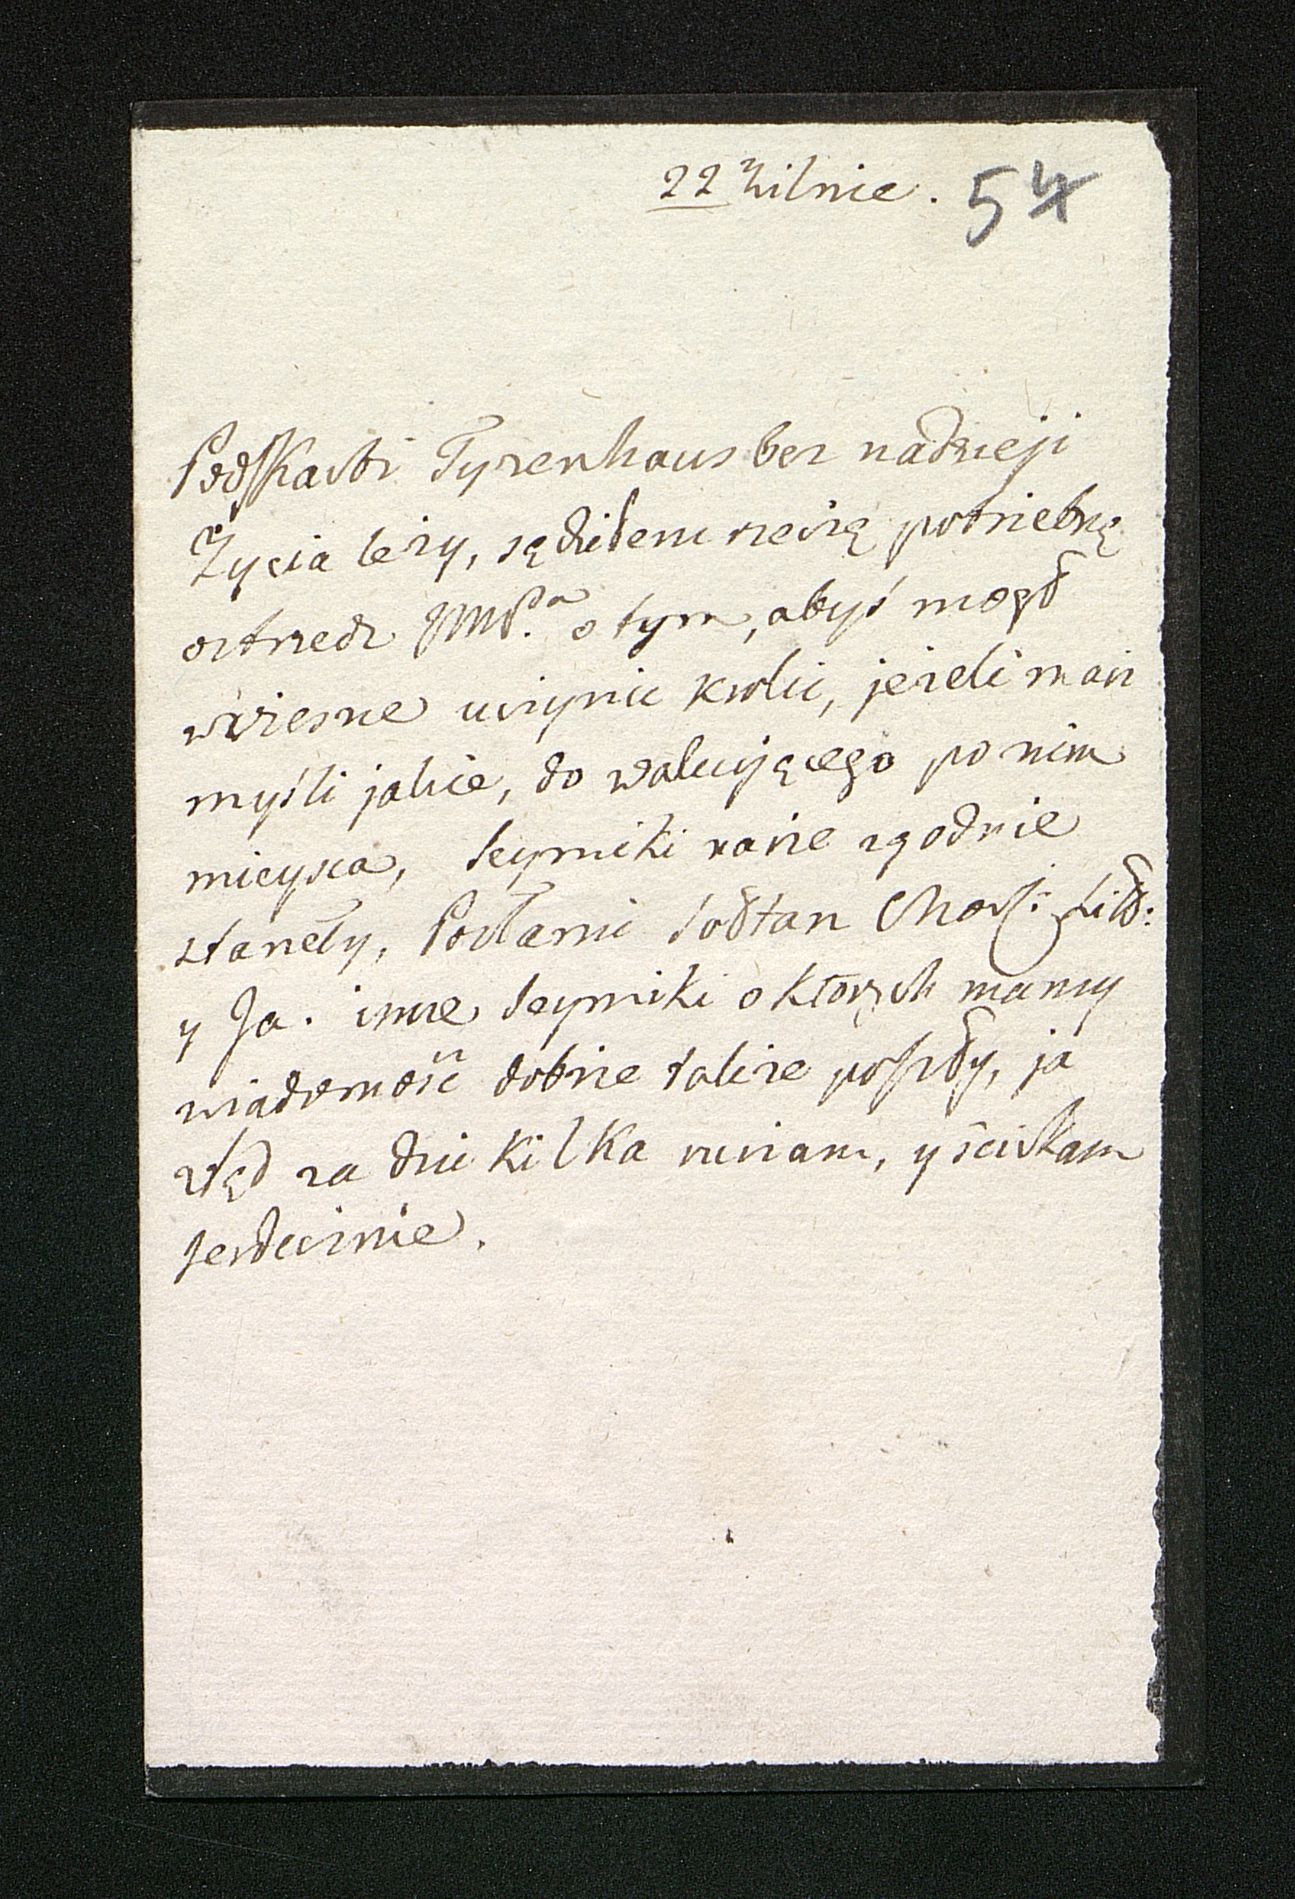 22 Wilnie. 54
Podskarbi Tyzenhaus bez nadzieji
Życia leży, sądziłem rzeczą potrzebną
ostrzedz JMP.a o tym, abyś mogł
wczesne uczynić kroki, jeżeli masz
myśli jakie, do wakującego po nim
mieysca, seymiki nasze zgodnie
stanęły, Posłami Sołtan Chorą: Lit:
y Ja. inne seymiki o ktorych mamy
wiadomość dobrze także poszły, ja
ztąd za dni kilka ruszam, y sciskam
serdecznie.